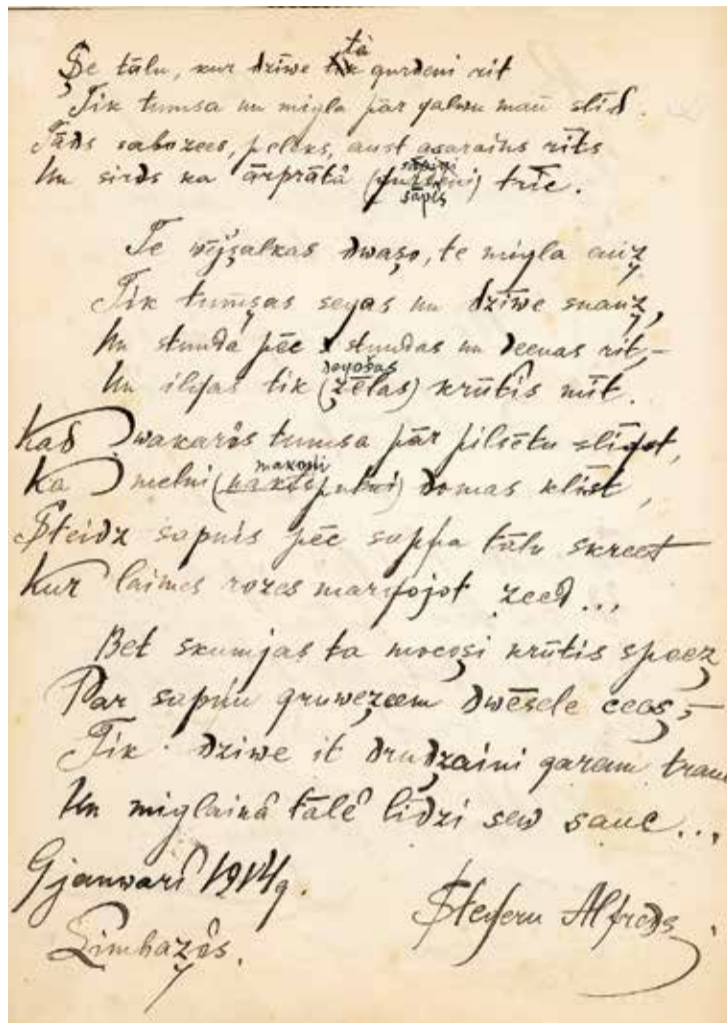 Še tālu, kur dzīwe tik tā gurdeni rit
Tik tumsa un migla pār galwu man slīd.
Tāds sabozees, peleks, aust asarains rīts
Un sirds ka ārprātâ sāpīs trīc.
Te wējš alkas dwašo, te migla
Tik tumšas segas un dzīwe snauž,
Un stunda pēc stundas un deenas rit, –
Un ilgas tik degošas (žēlas) krūtis mīt.
Kad wakarôs tumsa pār pilsētu slīgst,
Ka melni makoņi domas klīst,
Steidz sapnis pēc sapņa tālu skreet
Kur laimes rozes margojot zeed...
Bet skumjas ta mocoši krūtis speež
Par sapņu gruwežeem dwēsele –
Tik dzīwe it drudžaini garam trauc
Un miglainâ tālê līdzi sew sauc...
9 janwarî 1914 g.
Limbažôs.
Stegeru Alfreds.